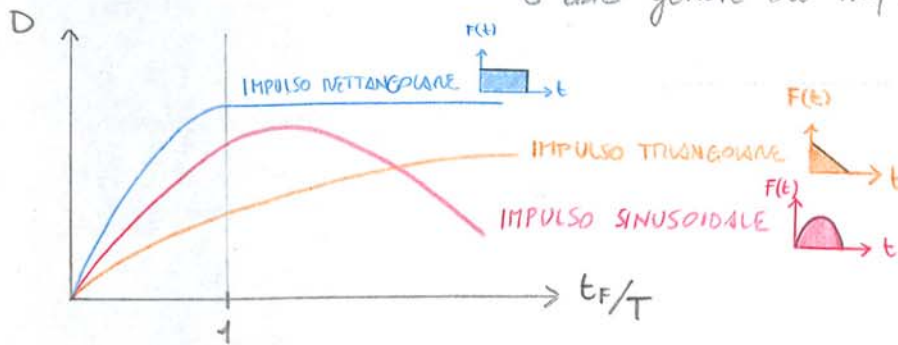 D
F(t)
IMPULSO RETTANGOLARE
t
F(t)
IMPULSO TRIANGOLARE
t
F(t)
IMPULSO SINUSOIDALE
t
tF/T
1